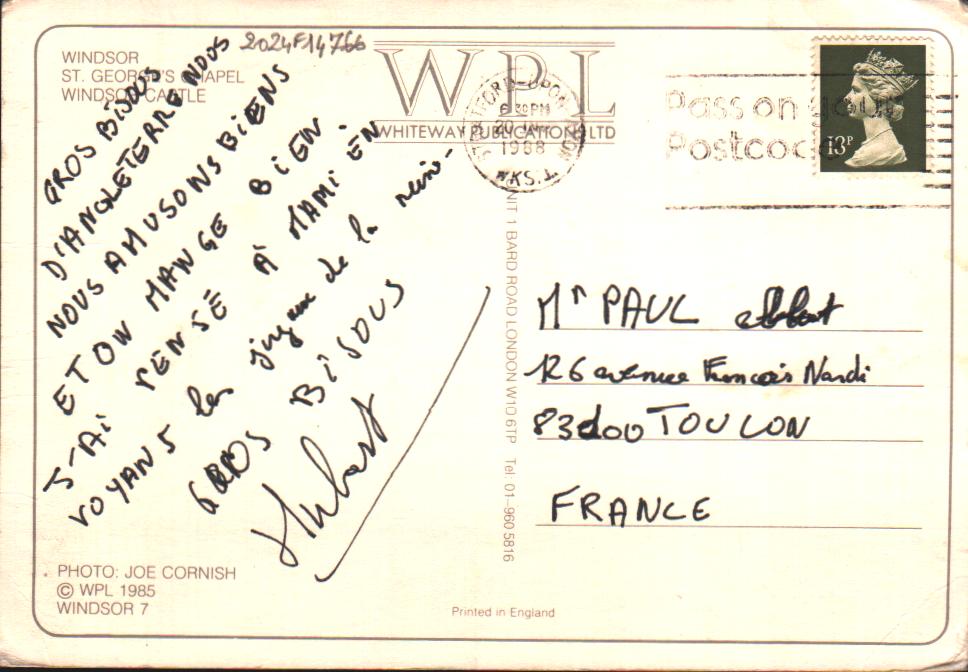 WINDSOR
ST. GEORGE'S CHAPEL
WINDSOR CASTLE
2024F14766
GROS BISOUS
D'ANGLETERRE NOUS
NOUS AMUSONS BIENS
ET ON MANGE BIEN
J-AI PENSÉ À MAMI EN
VOYANS les joyaux de la reine-
GROS BISOUS
WPL
WHITEWAY PUBLICATIONS LTD
STRATFORD-UPON-AVON
6 30PM
1988
WKS.
Pass on your
Postcode
13P
UNIT 1 BARD ROAD LONDON W10 6TP Tel: 01-960 5816
Mr PAUL
126 avenue François Nardi
83200 TOULON
FRANCE
PHOTO: JOE CORNISH
© WPL 1985
WINDSOR 7
Printed in England